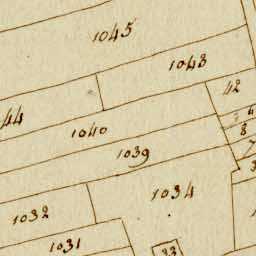 1045
1043
42
44
1040
8
1039
1034
1032
1031
33